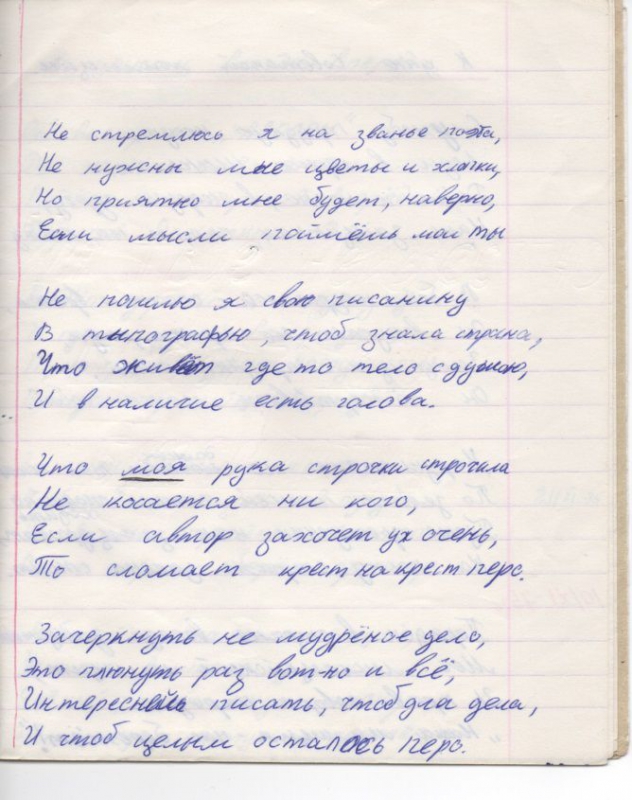 Не стремлюсь я на званье поэта,
Не нужны мые цветы и хлопки,
Но приятно мне будет, наверно,
Если мысли поймёшь мои ты
Не пошлю я свою писанину
В тыпографью, чтоб знала страна,
Что живёт где то тело с душою,
И в наличие есть голова.
Что моя рука строчки строчила
Не косается ни кого,
Если автор захочет уж очень,
То сломает крест на крест перо.
Зачеркнуть не мудрёное дело,
Это плюнуть раз вот-но и всё,
Интересней писать, чтоб для дела,
И чтоб целым осталось перо.